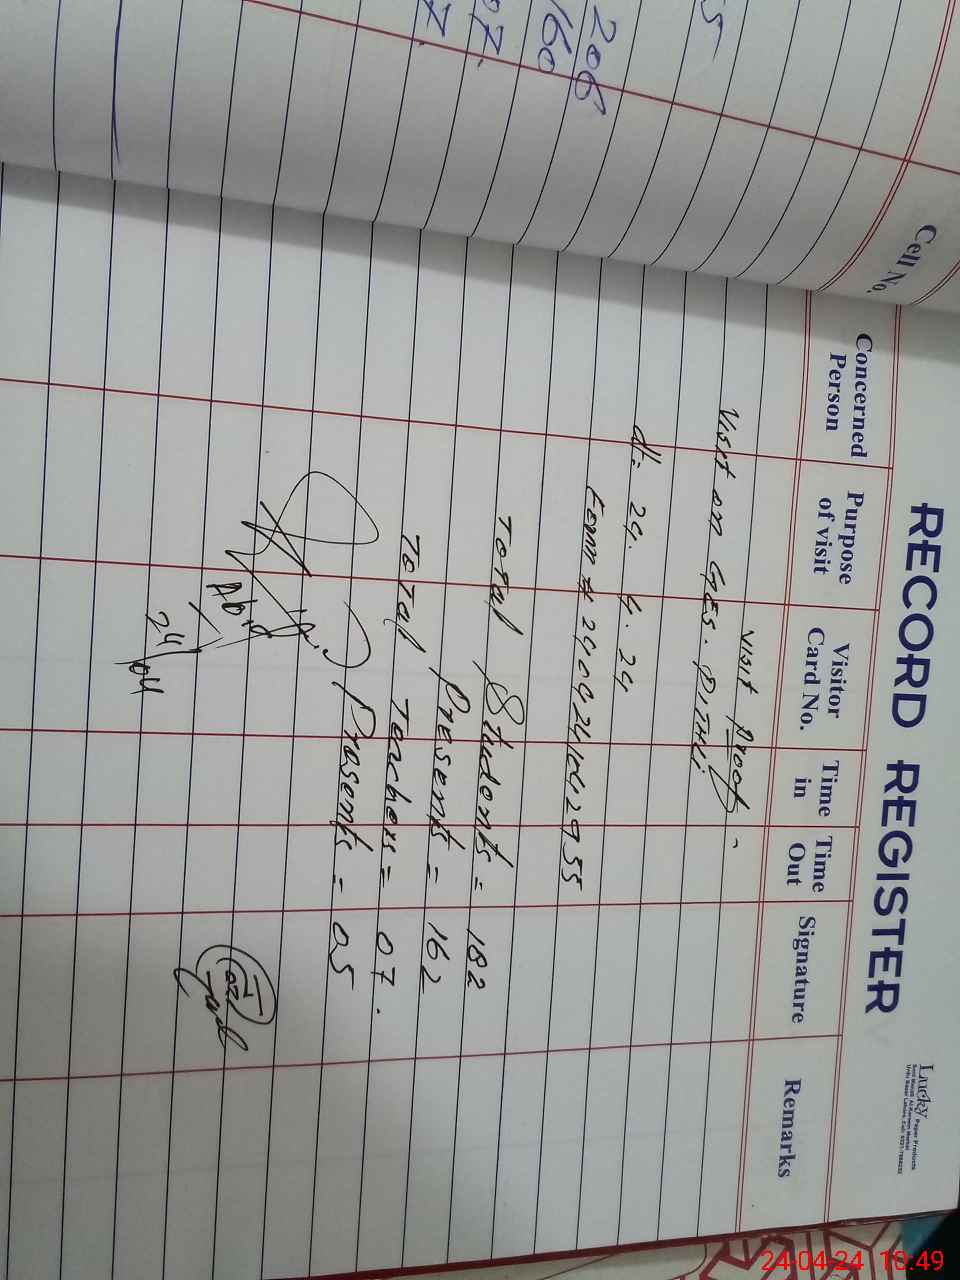 RECORD REGISTER
Lucky Paper Products
Cell No.
Concerned Person
Purpose of visit
Visitor Card No.
Time in
Time Out
Signature
Remarks
Visit Proof -
Visit on GES. DITHLI
dt: 24. 4. 24
Total Students = 182
Presents = 162
Total Teachers = 07.
Presents = 05
Abid
24/04
206
160
07.
7.
5
24-04-24 10:49